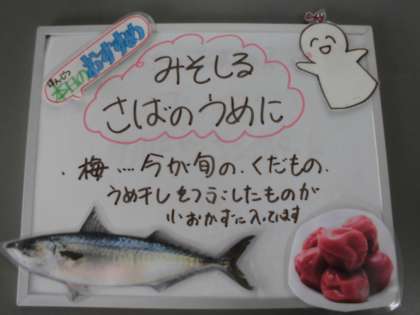 ほんじつ
本日のおすすめ
みそしる
さばのうめに
・梅…今が旬の、くだもの、
うめ干しをつぶしたものが
小おかずに入ってます